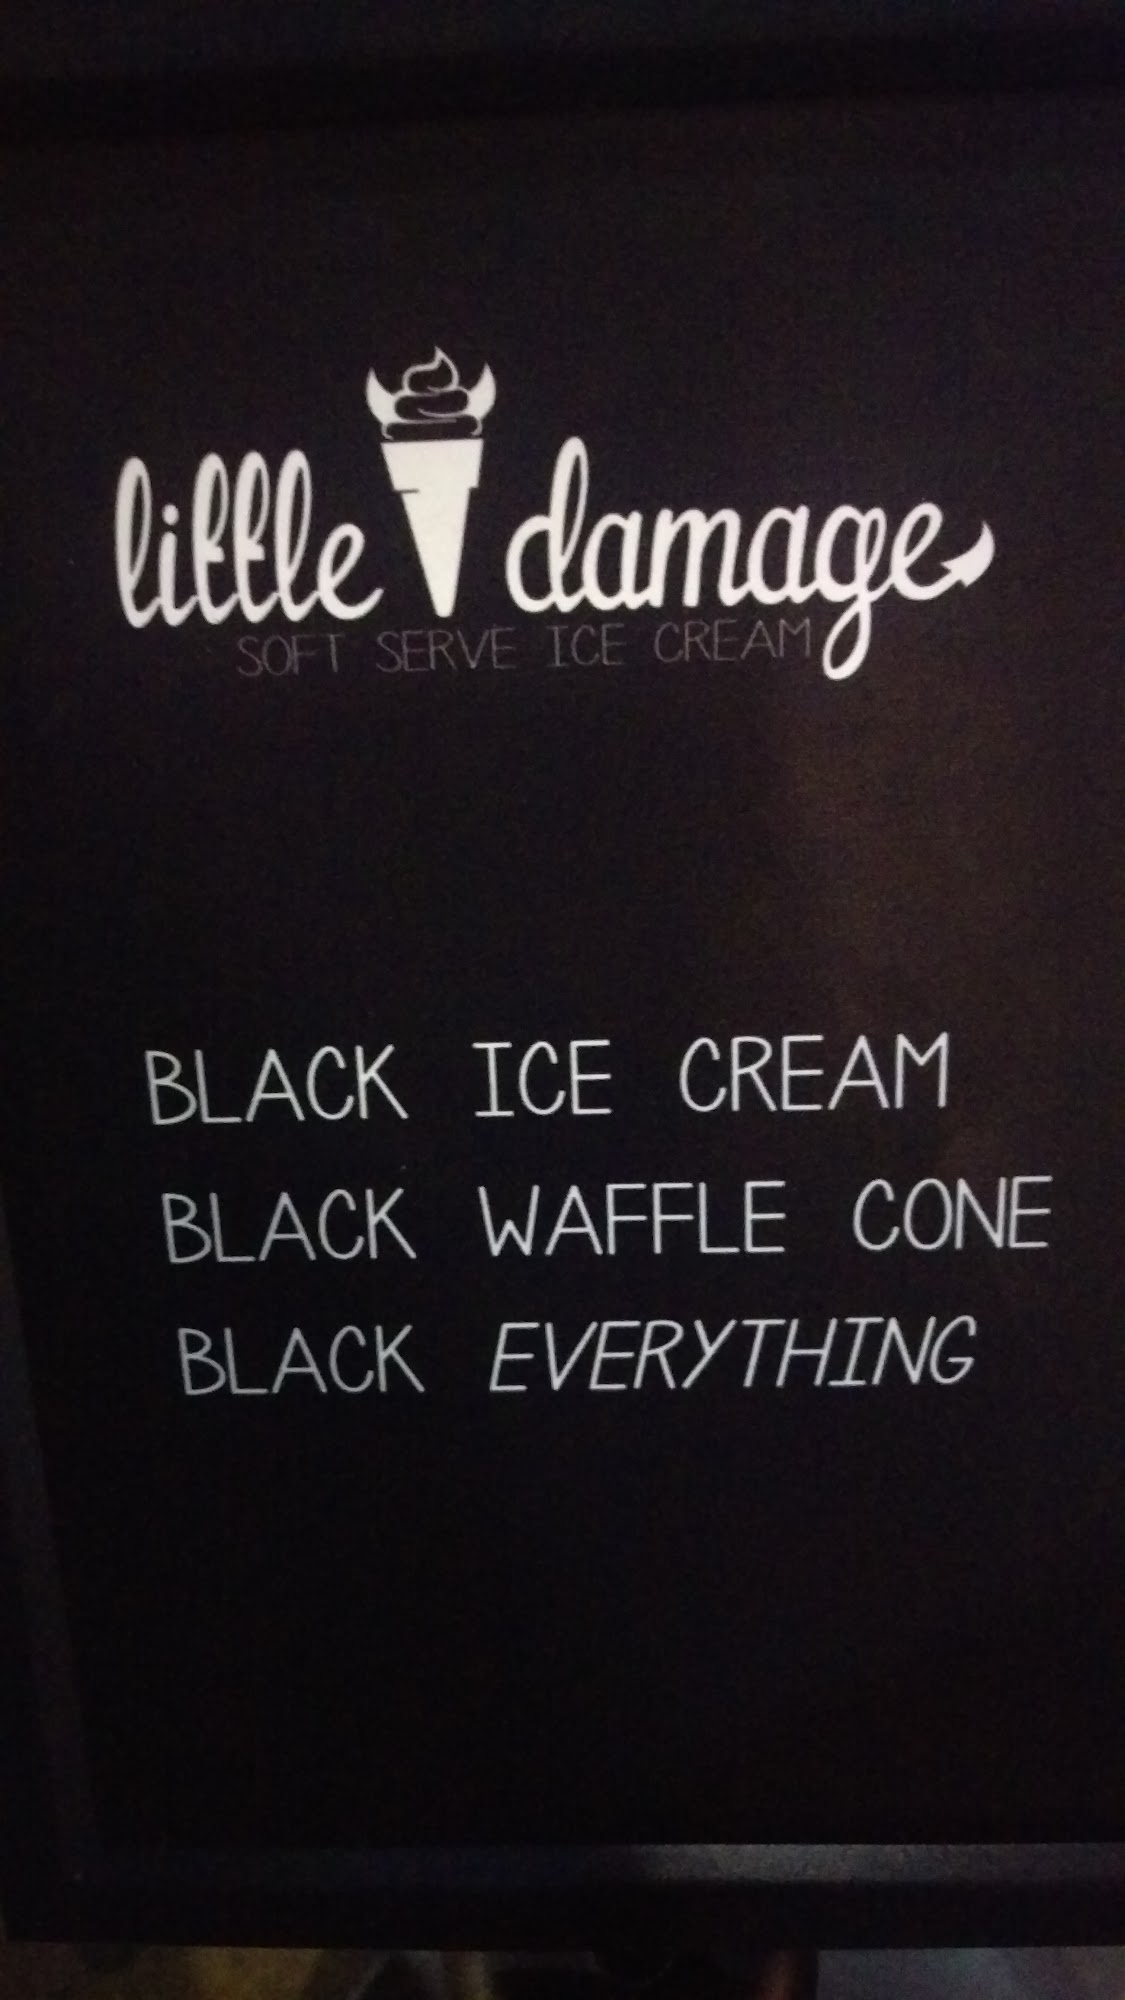 little damage
SOFT SERVE ICE CREAM
BLACK ICE CREAM
BLACK WAFFLE CONE
BLACK EVERYTHING